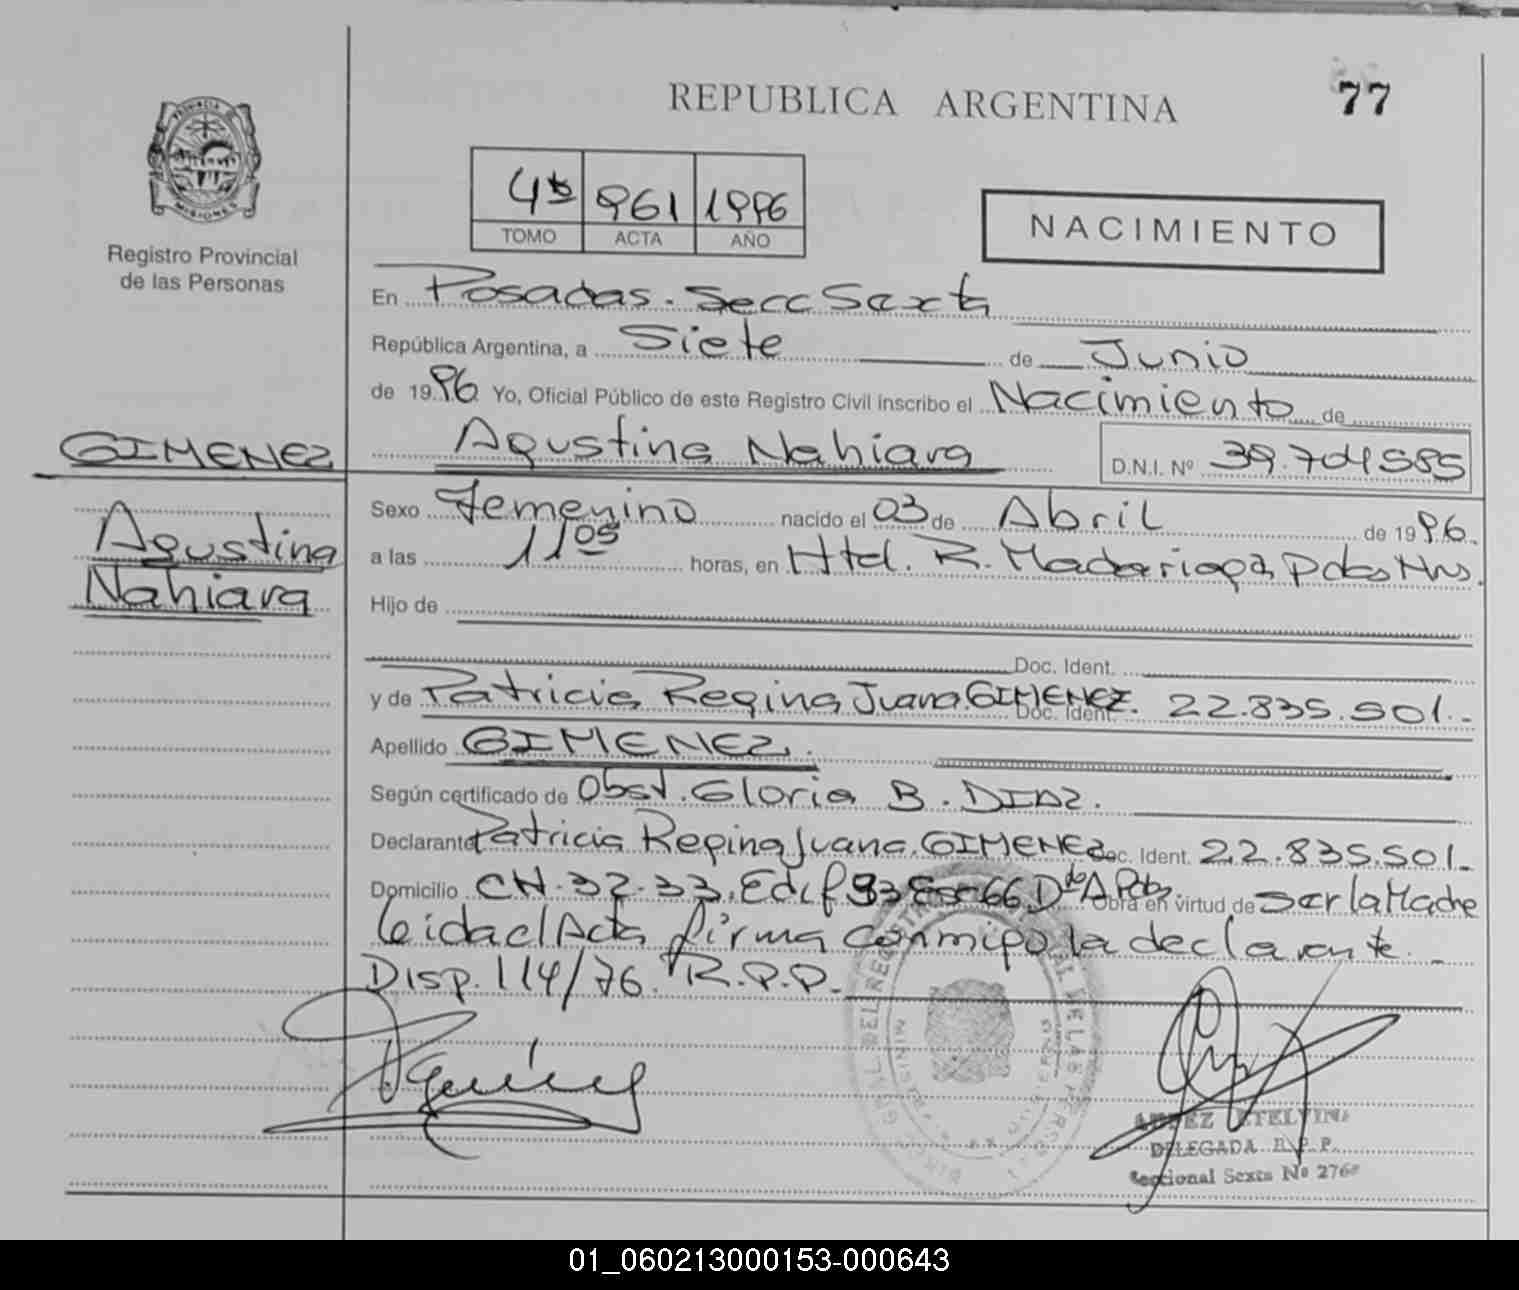 REPUBLICA ARGENTINA
77
PROVINCIA DE
MISIONES
Registro Provincial
de las Personas
4to 961 1996
TOMO ACTA AÑO
NACIMIENTO
En Posadas. Secc Sexta
República Argentina, a Siete de Junio
de 1996 Yo, Oficial Público de este Registro Civil inscribo el Nacimiento de
GIMENEZ
Agustina Nahiara D.N.I. Nº 39.704585
Agustina
Nahiara
Sexo Femenino nacido el 03 de Abril de 1996.
a las 11 05 horas, en Htal. R. Madariaga, Pdas Mns.
Hijo de
Doc. Ident.
y de Patricia Regina Juana. GIMENEZ. Doc. Ident. 22.835.501.-
Apellido GIMENEZ.
Según certificado de Obst. Gloria B. DIAZ.
Declarante Patricia Regina Juana. GIMENEZ Doc. Ident. 22.835.501.-
Domicilio CH. 32-33. Edif 93 Esc 66 Dto A Pdas. Obra en virtud de ser la Madre
Leida el Acta firma conmigo la declarante.-
Disp. 114/76. R.P.P.-
DELEGADA R.P.P.
Seccional Sexta Nº 276
01_060213000153-000643